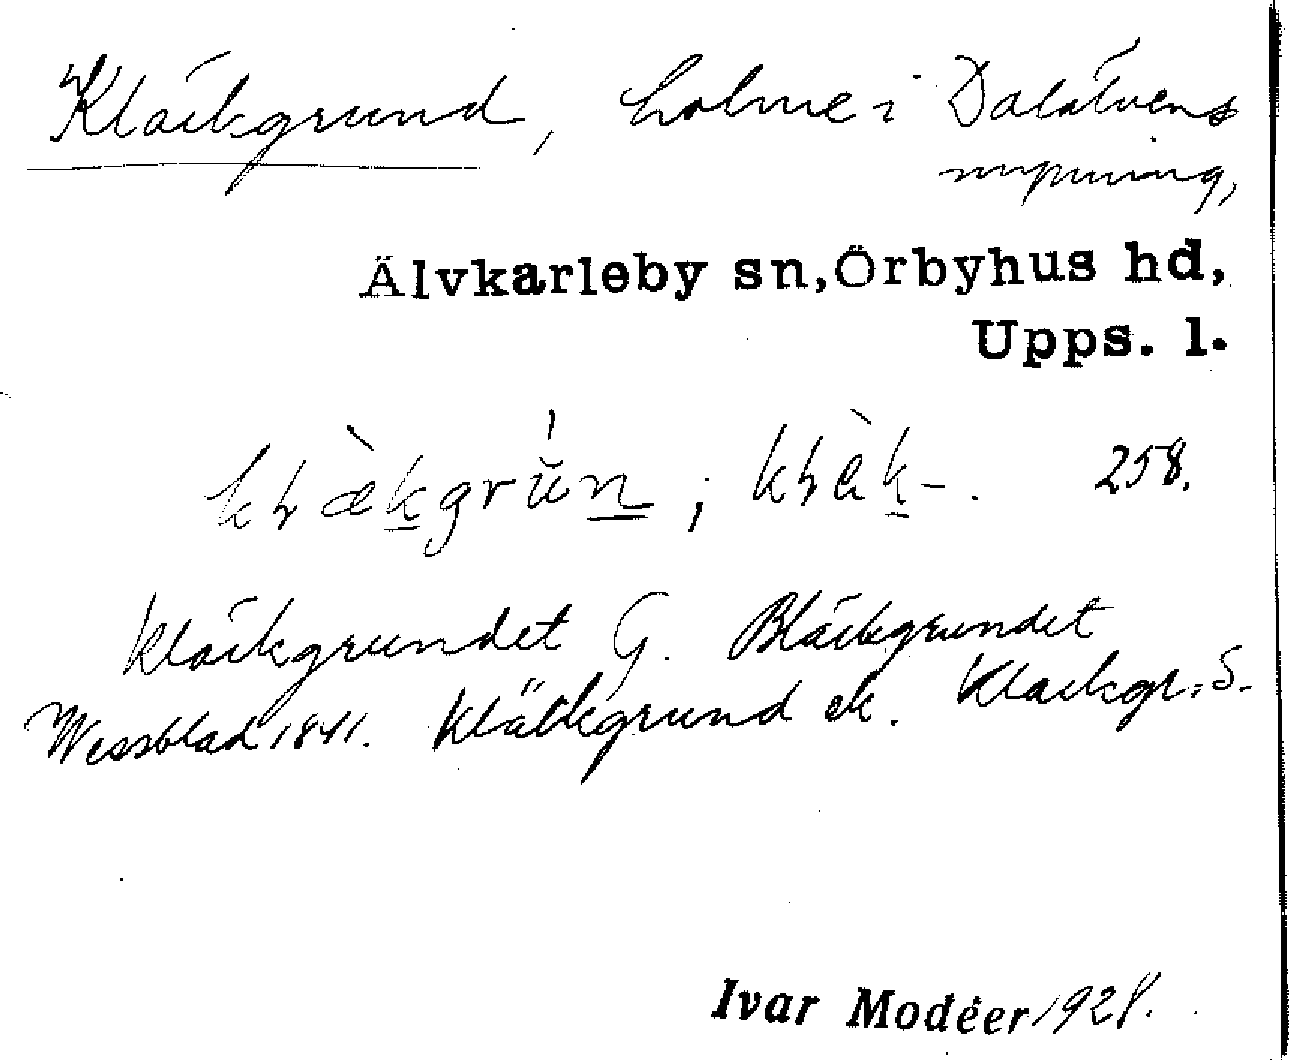 Kläckgrund, holme i Dalälvens
mynning,
Älvkarleby sn, Örbyhus hd,
Upps. l.
258.
Kläckgrundet G. Bläckgrundet
Wessblad 1841. Kläckgrund ek. Kläckgr. S.
Ivar Modéer 1928.